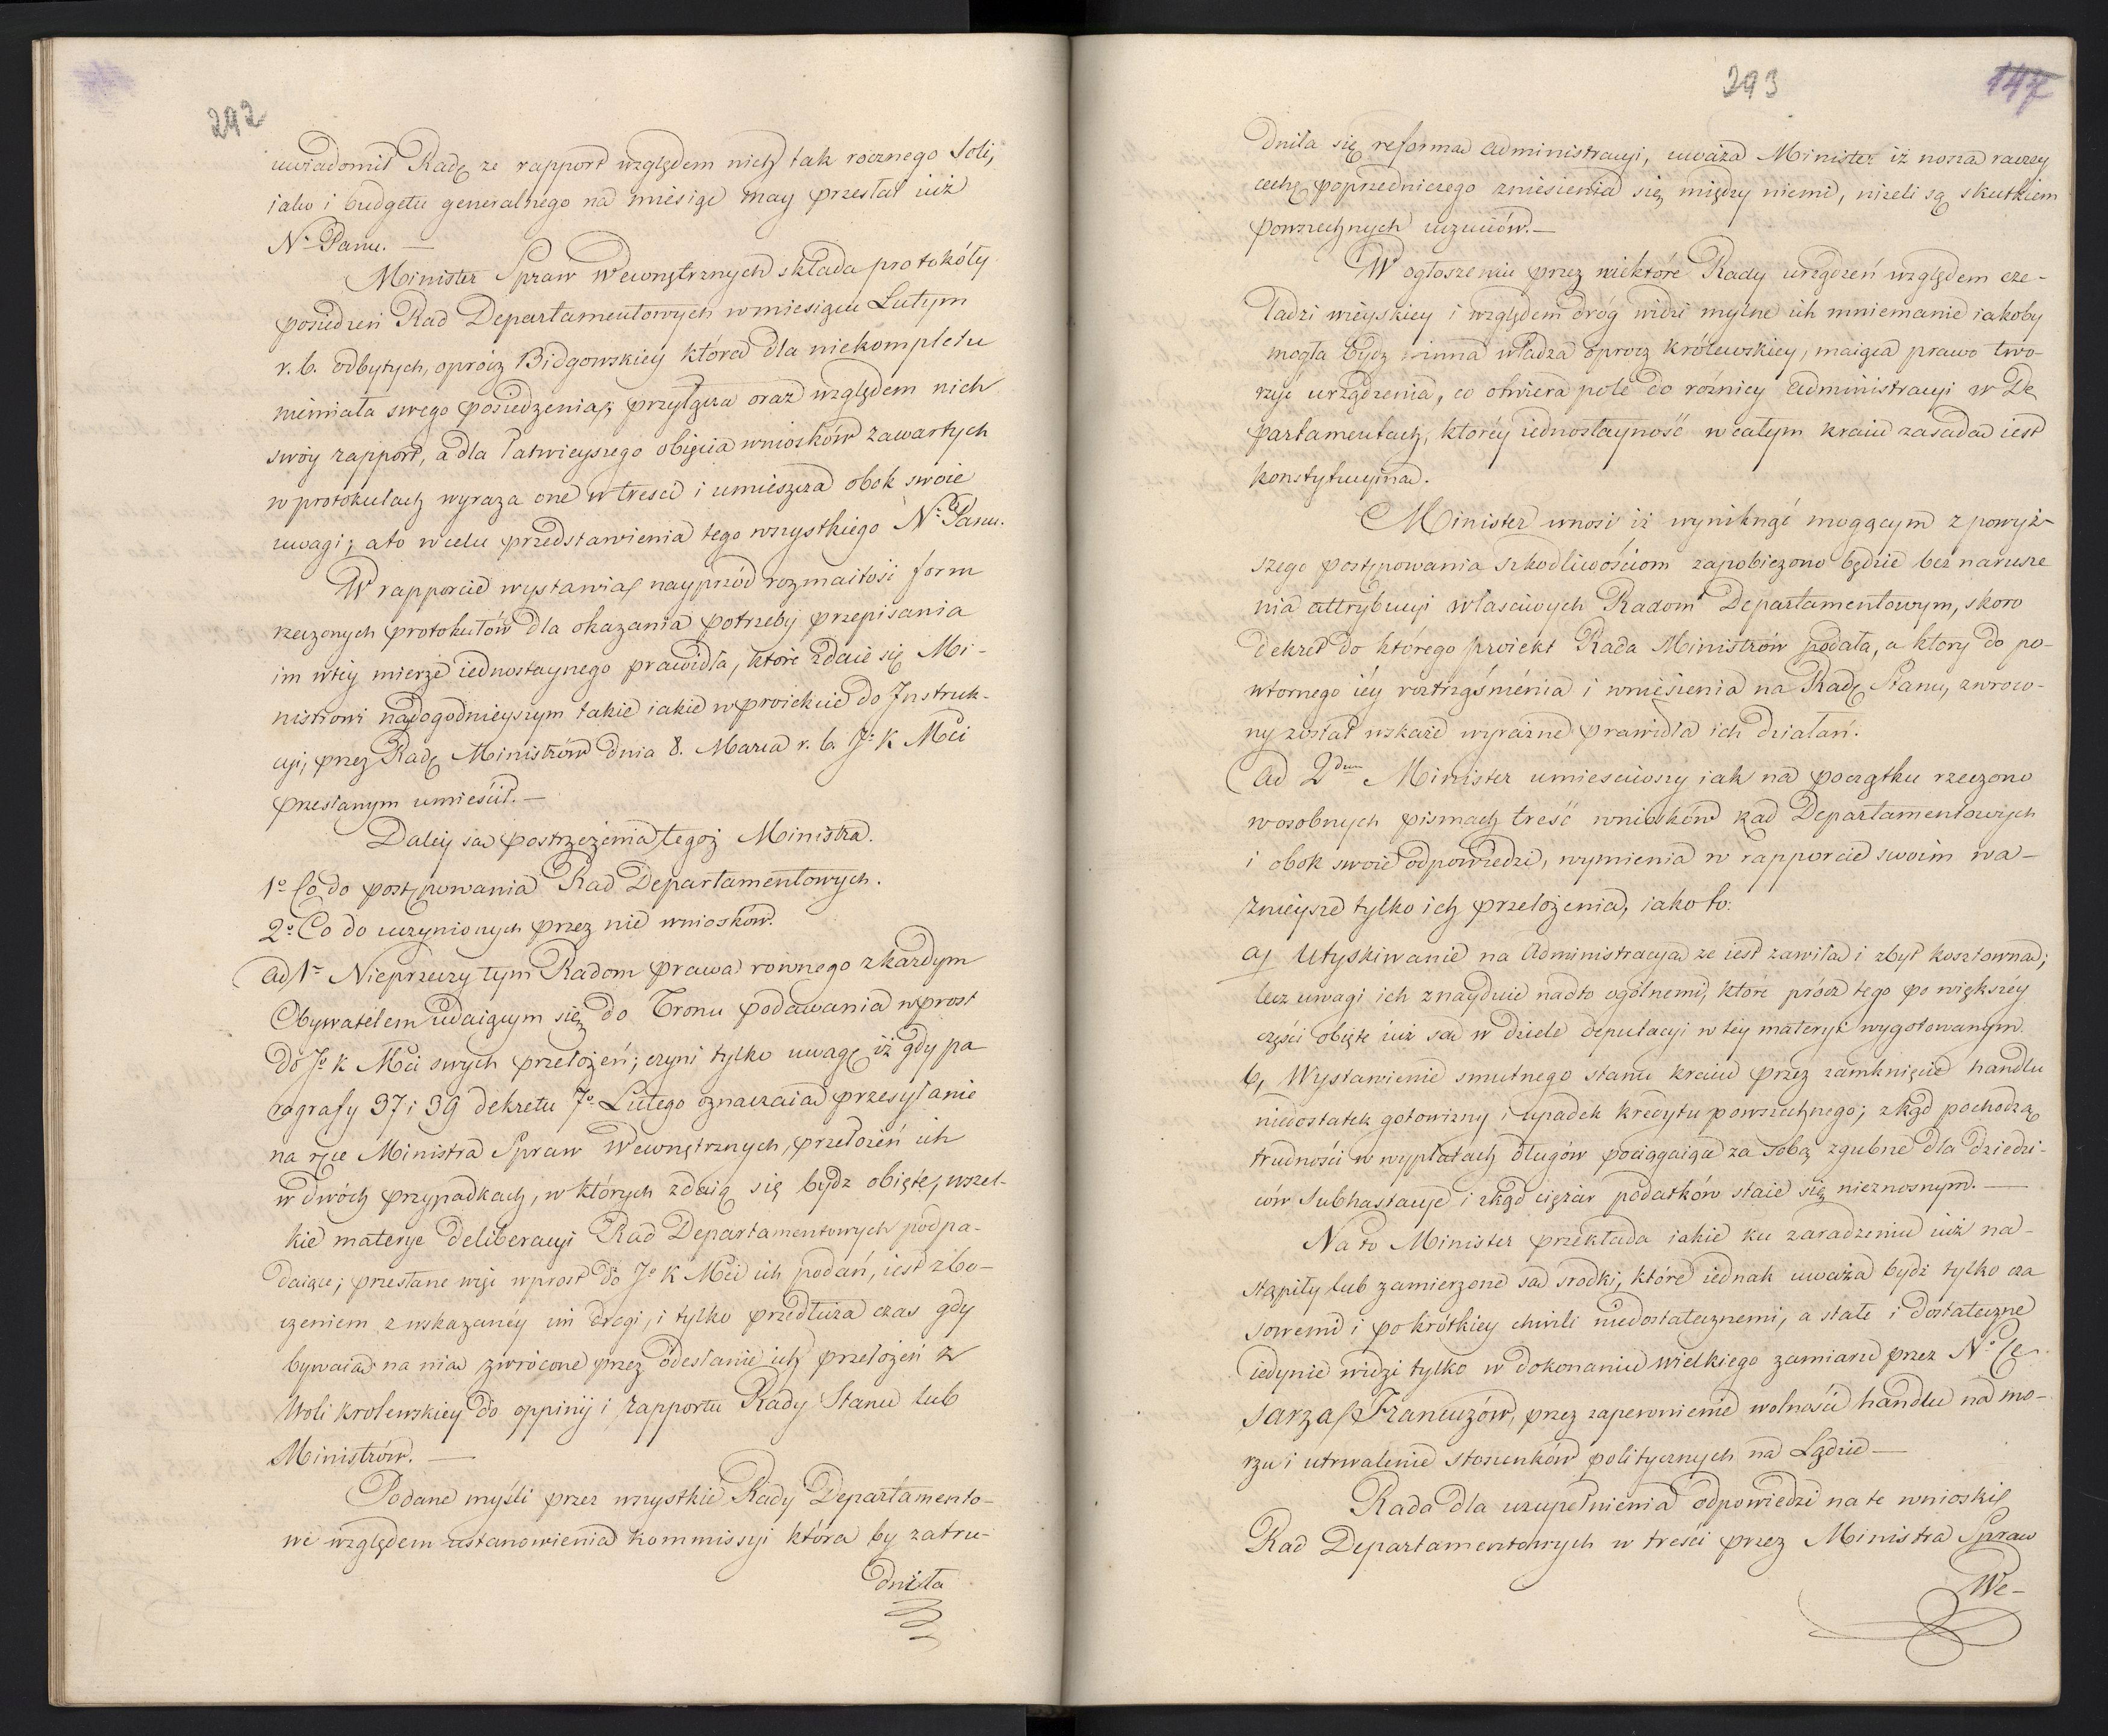 292
uwiadomił Radę ze rapport względem nich tak rocznego Soli,
iako i budgetu generalnego na miesiąc may przesłał iuż
N. Panu. —
Minister Spraw Wewnętrznych składa protokóły
posiedzeń Rad Departamentowych w miesiącu Lutym
r. b. odbytych, oprócz Bidgowskiey która dla niekompletu
niemiała swego posiedzenia; przyłącza oraz względem nich
swóy rapport, a dla łatwieyszego obięcia wniosków zawartych
w protokułach wyraza one w tresci i umieszcza obok swoie
uwagi; a to w celu przedstawienia tego wszystkiego N. Panu.
W rapporcie wystawia nayprzód rozmaitość form
rzeczonych protokułów dla okazania potrzeby przepisania
im w tey mierze iednostaynego prawidła, które zdaie się Mi-
nistrowi naydogodnieyszym takie iakie w proiekcie do Instruk-
cyi, przez Radę Ministrów dnia 8. Marca r. b. J. K Mci
przesłanym umieścił. —
Daley są postrzeżenia tegoż Ministra.
1o Co do postępowania Rad Departamentowych.
2o Co do uczynionych przez nie wniosków.
Ad 1m Nieprzeczy tym Radom prawa rownego z każdym
Obywatelem udaiącym się do Tronu podawania wprost
do J. K Mci swych przełożeń; czyni tylko uwagę iż gdy pa
ragrafy 37 i 39 dekretu 7o Lutego oznaczaią przesyłanie
na ręce Ministra Spraw Wewnętrznych, przełożeń ich
w dwóch przypadkach, w których zdaią się bydz obięte, wszel-
kie materye deliberacyi Rad Departamentowych podpa-
daiące; przesłane więc wprost do J. K Mci ich podań, iest zbo-
czeniem z wskazanéy im drogi, i tylko przedłuża czas gdy
bywaią na nią zwrócone przez odesłanie ich przełożeń z
Woli krolewskiey do oppinij i rapportu Rady Stanu lub
Ministrów. —
Podane myśli przez wszystkie Rady Departamento-
we względem ustanowienia kommissyi która by zatru-
dniła
293
147
dniła się reformą administracyi, uważa Minister iż noszą raczey
cechę poprzedniczego zniesienia się między niemi, niżeli są skutkiem
powszechnych uczuciów. —
W ogłoszeniu przez niektóre Rady urządzeń względem cze-
ladzi wieyskiey i względem dróg widzi mylne ich mniemanie iakoby
mogła bydz inna władza oprócz królewskiey, maiąca prawo two-
rzyć urządzenia, co otwiera pole do różnicy administracyi w De
partamentach, któréy iednostayność w całym kraiu zasadą iest
konstytucyiną.
Minister wnosi iż wyniknąć mogącym z powyż-
szego postępowania szkodliwościom zapobieżono będzie bez narusze
nia attrybucyi właściwych Radom Departamentowym, skoro
dekret do którego proiekt Rada Ministrów podała, a ktory do po-
wtornego iéy roztrząśniénia i wniesienia na Radę Stanu, zwróco-
ny został wskaże wyrazne prawidła ich działań.
Ad 2dum Minister umieściwszy iak na początku rzeczono
w osobnych pismach treść wniosków Rad Departamentowych
i obok swoie odpowiedzi, wymienia w rapporcie swoim wa-
znieysze tylko ich przełożenia, iako to:
a, Utyskiwanie na Administracyą ze iest zawiła i zbyt kosztowna;
lecz uwagi ich znayduie nadto ogólnemi, które prócz tego po większéy
części obięte iuż są w dziele deputacyi w téy materyi wygotowanym.
b, Wystawienie smutnego stanu kraiu przez zamknięcie handlu
niedostatek gotowizny i upadek kredytu powszechnego; zkąd pochodzą
trudności w wypłatach długów pociągaiące za sobą zgubne dla dziedzi-
ców Subhastacye i zkąd ciężar podatków staie się nieznosnym. —
Na to Minister przekłada iakie ku zaradzeniu iuż na-
stąpiły lub zamierzone są srodki, które iednak uważa bydź tylko cza
sowemi i po krótkiey chwili niedostatecznemi, a stałe i dostateczne
iedynie widzi tylko w dokonaniu wielkiego zamiaru przez N. Ce
sarza Francuzów, przez zapewnienie wolności handlu na mo-
rzu i utrwalenie stosunków politycznych na Lądzie —
Rada dla uzupełnienia odpowiedzi na te wnioski
Rad Departamentowych w treści przez Ministra Spraw
We-